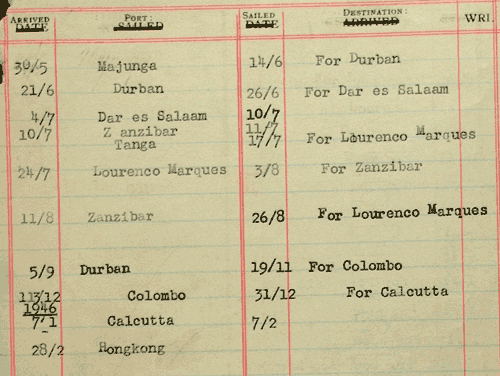 ARRIVED PORT: SAILED DESTINATION:
DATE SAILED DATE ARRIVED WRI
30/5 Majunga 14/6 For Durban
21/6 Durban 26/6 For Dar es Salaam
4/7 Dar es Salaam 10/7
10/7 Z anzibar 11/7
Tanga 17/7 For Lourenco Marques
24/7 Lourenco Marques 3/8 For Zanzibar
11/8 Zanzibar 26/8 For Lourenco Marques
5/9 Durban 19/11 For Colombo
Colombo 31/12 For Calcutta
1946
7/1 Calcutta 7/2
28/2 Hongkong